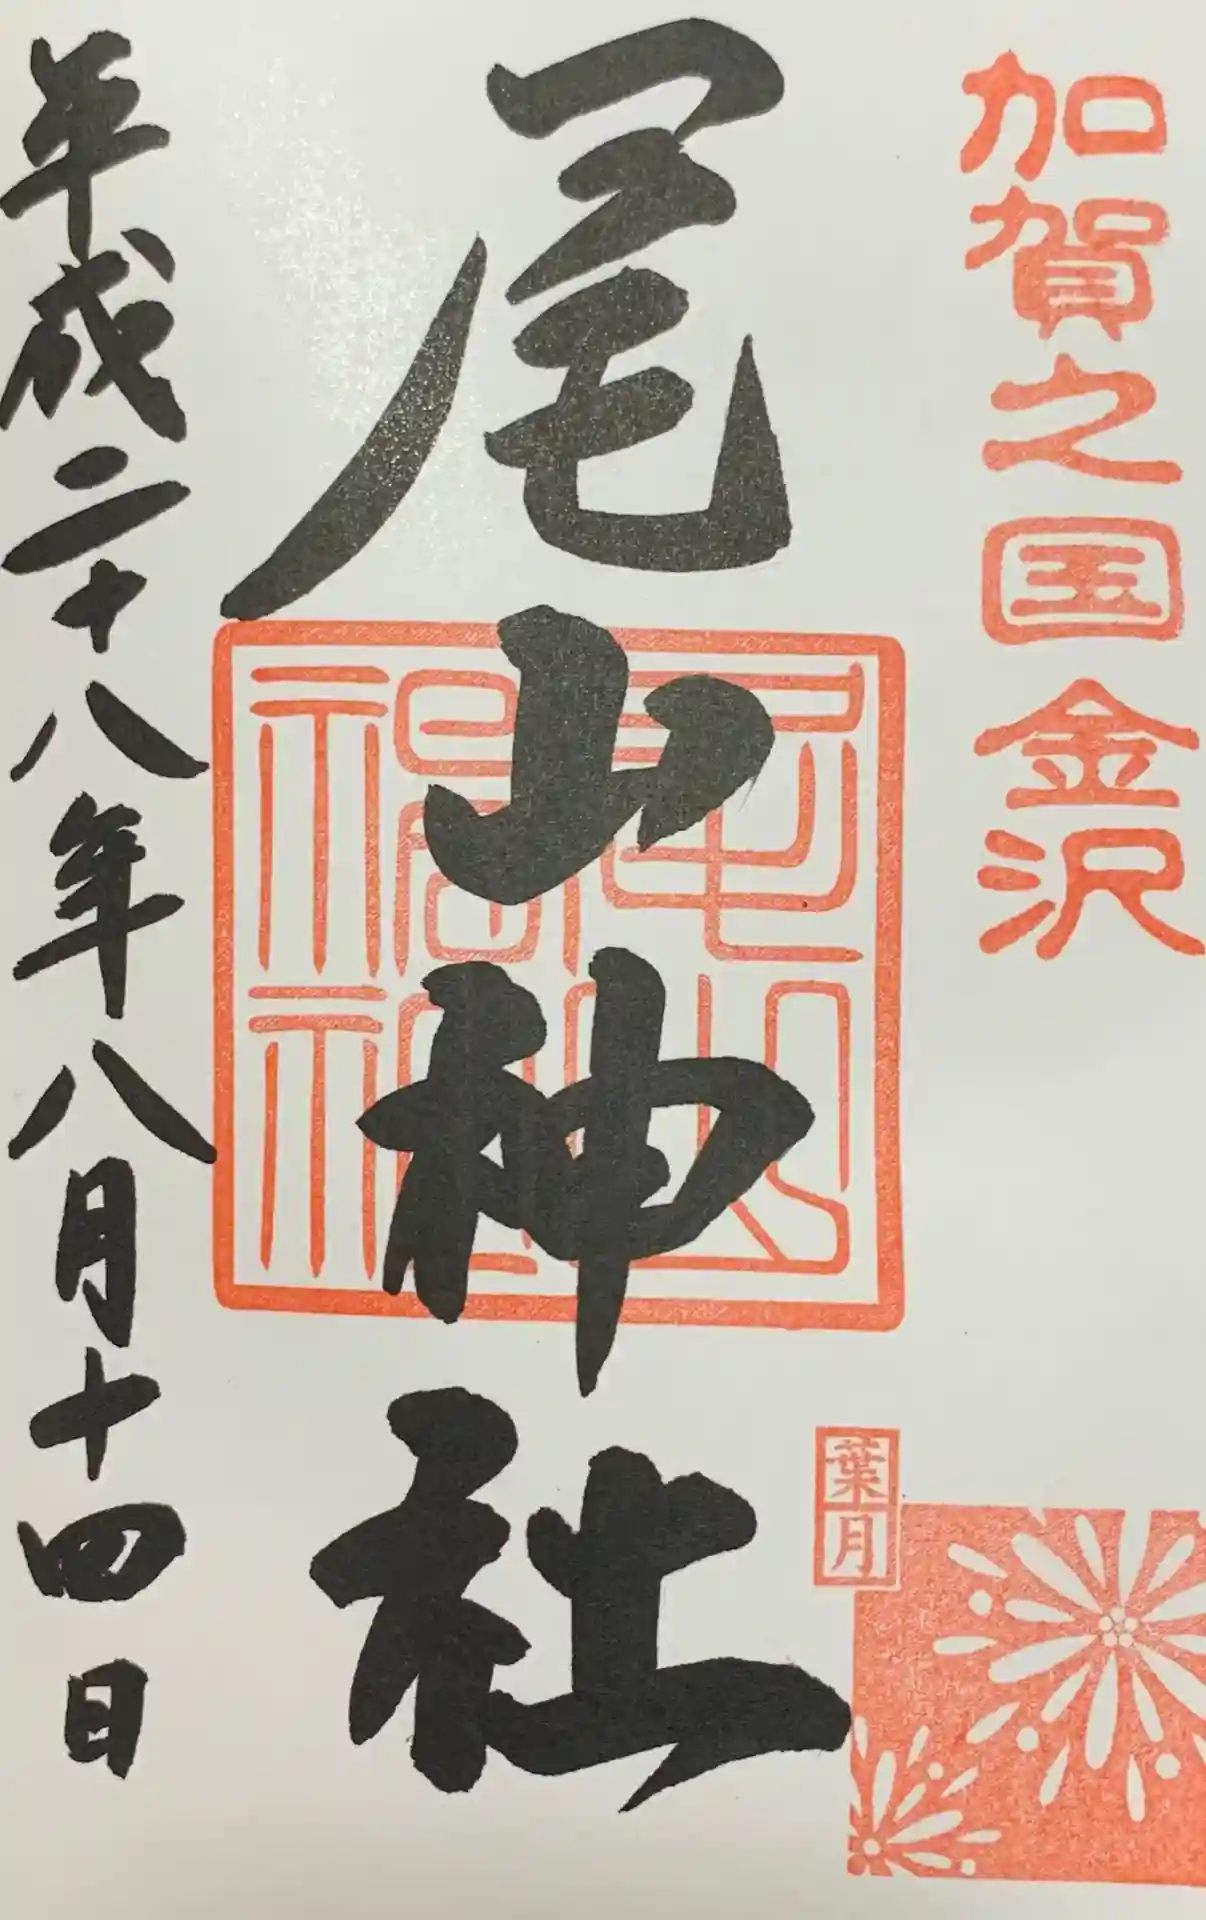 加賀之国金沢
尾山神社
尾山
神社
葉月
平成二十八年八月十四日